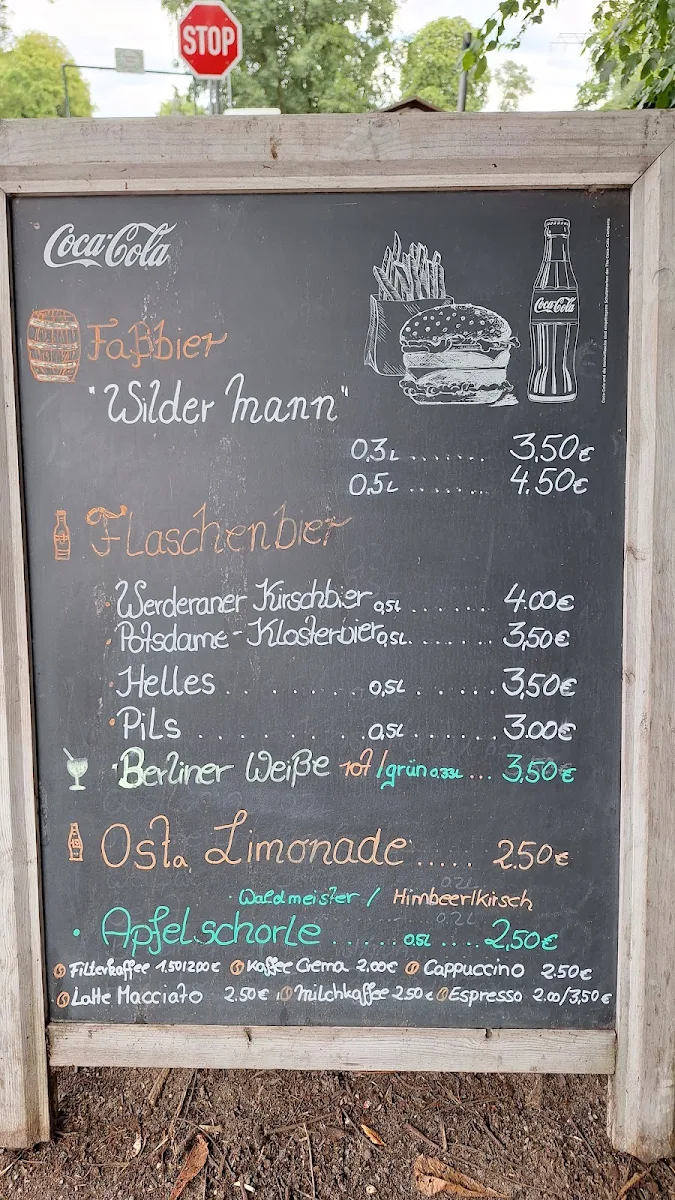 STOP
Coca-Cola
Coca-Cola
Faßbier
"Wilder Mann"
0,3L ....... 3,50€
0,5L ....... 4.50€
Flaschenbier
Werderaner Kirschbier 0,5L ....... 4.00€
Potsdame-Klosterbier 0,5L ....... 3,50€
Helles ....... 0,5L ....... 3,50€
Pils ....... 0,5L ....... 3.00€
Berliner Weiße rot/grün 0,33L ... 3,50€
Osta Limonade ..... 2.50€
Waldmeister / Himbeer/kirsch
Apfelschorle ...... 0,5L .... 2,50€
Filterkaffee 1.50/2.00€ Kaffee Crema 2,00€ Cappuccino 2.50€
Latte Macciato 2.50€ Milchkaffee 2.50€ Espresso 2.00/3,50€